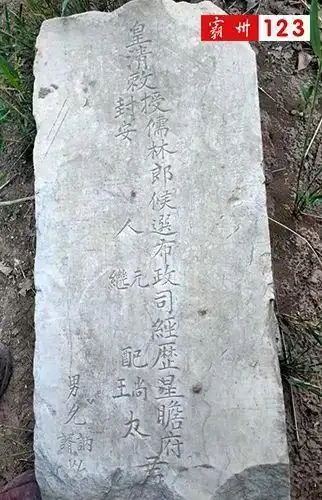 霸州123
皇清敕授儒林郎候選布政司經歷星瞻府君
封安人元配尚太
繼王
男允